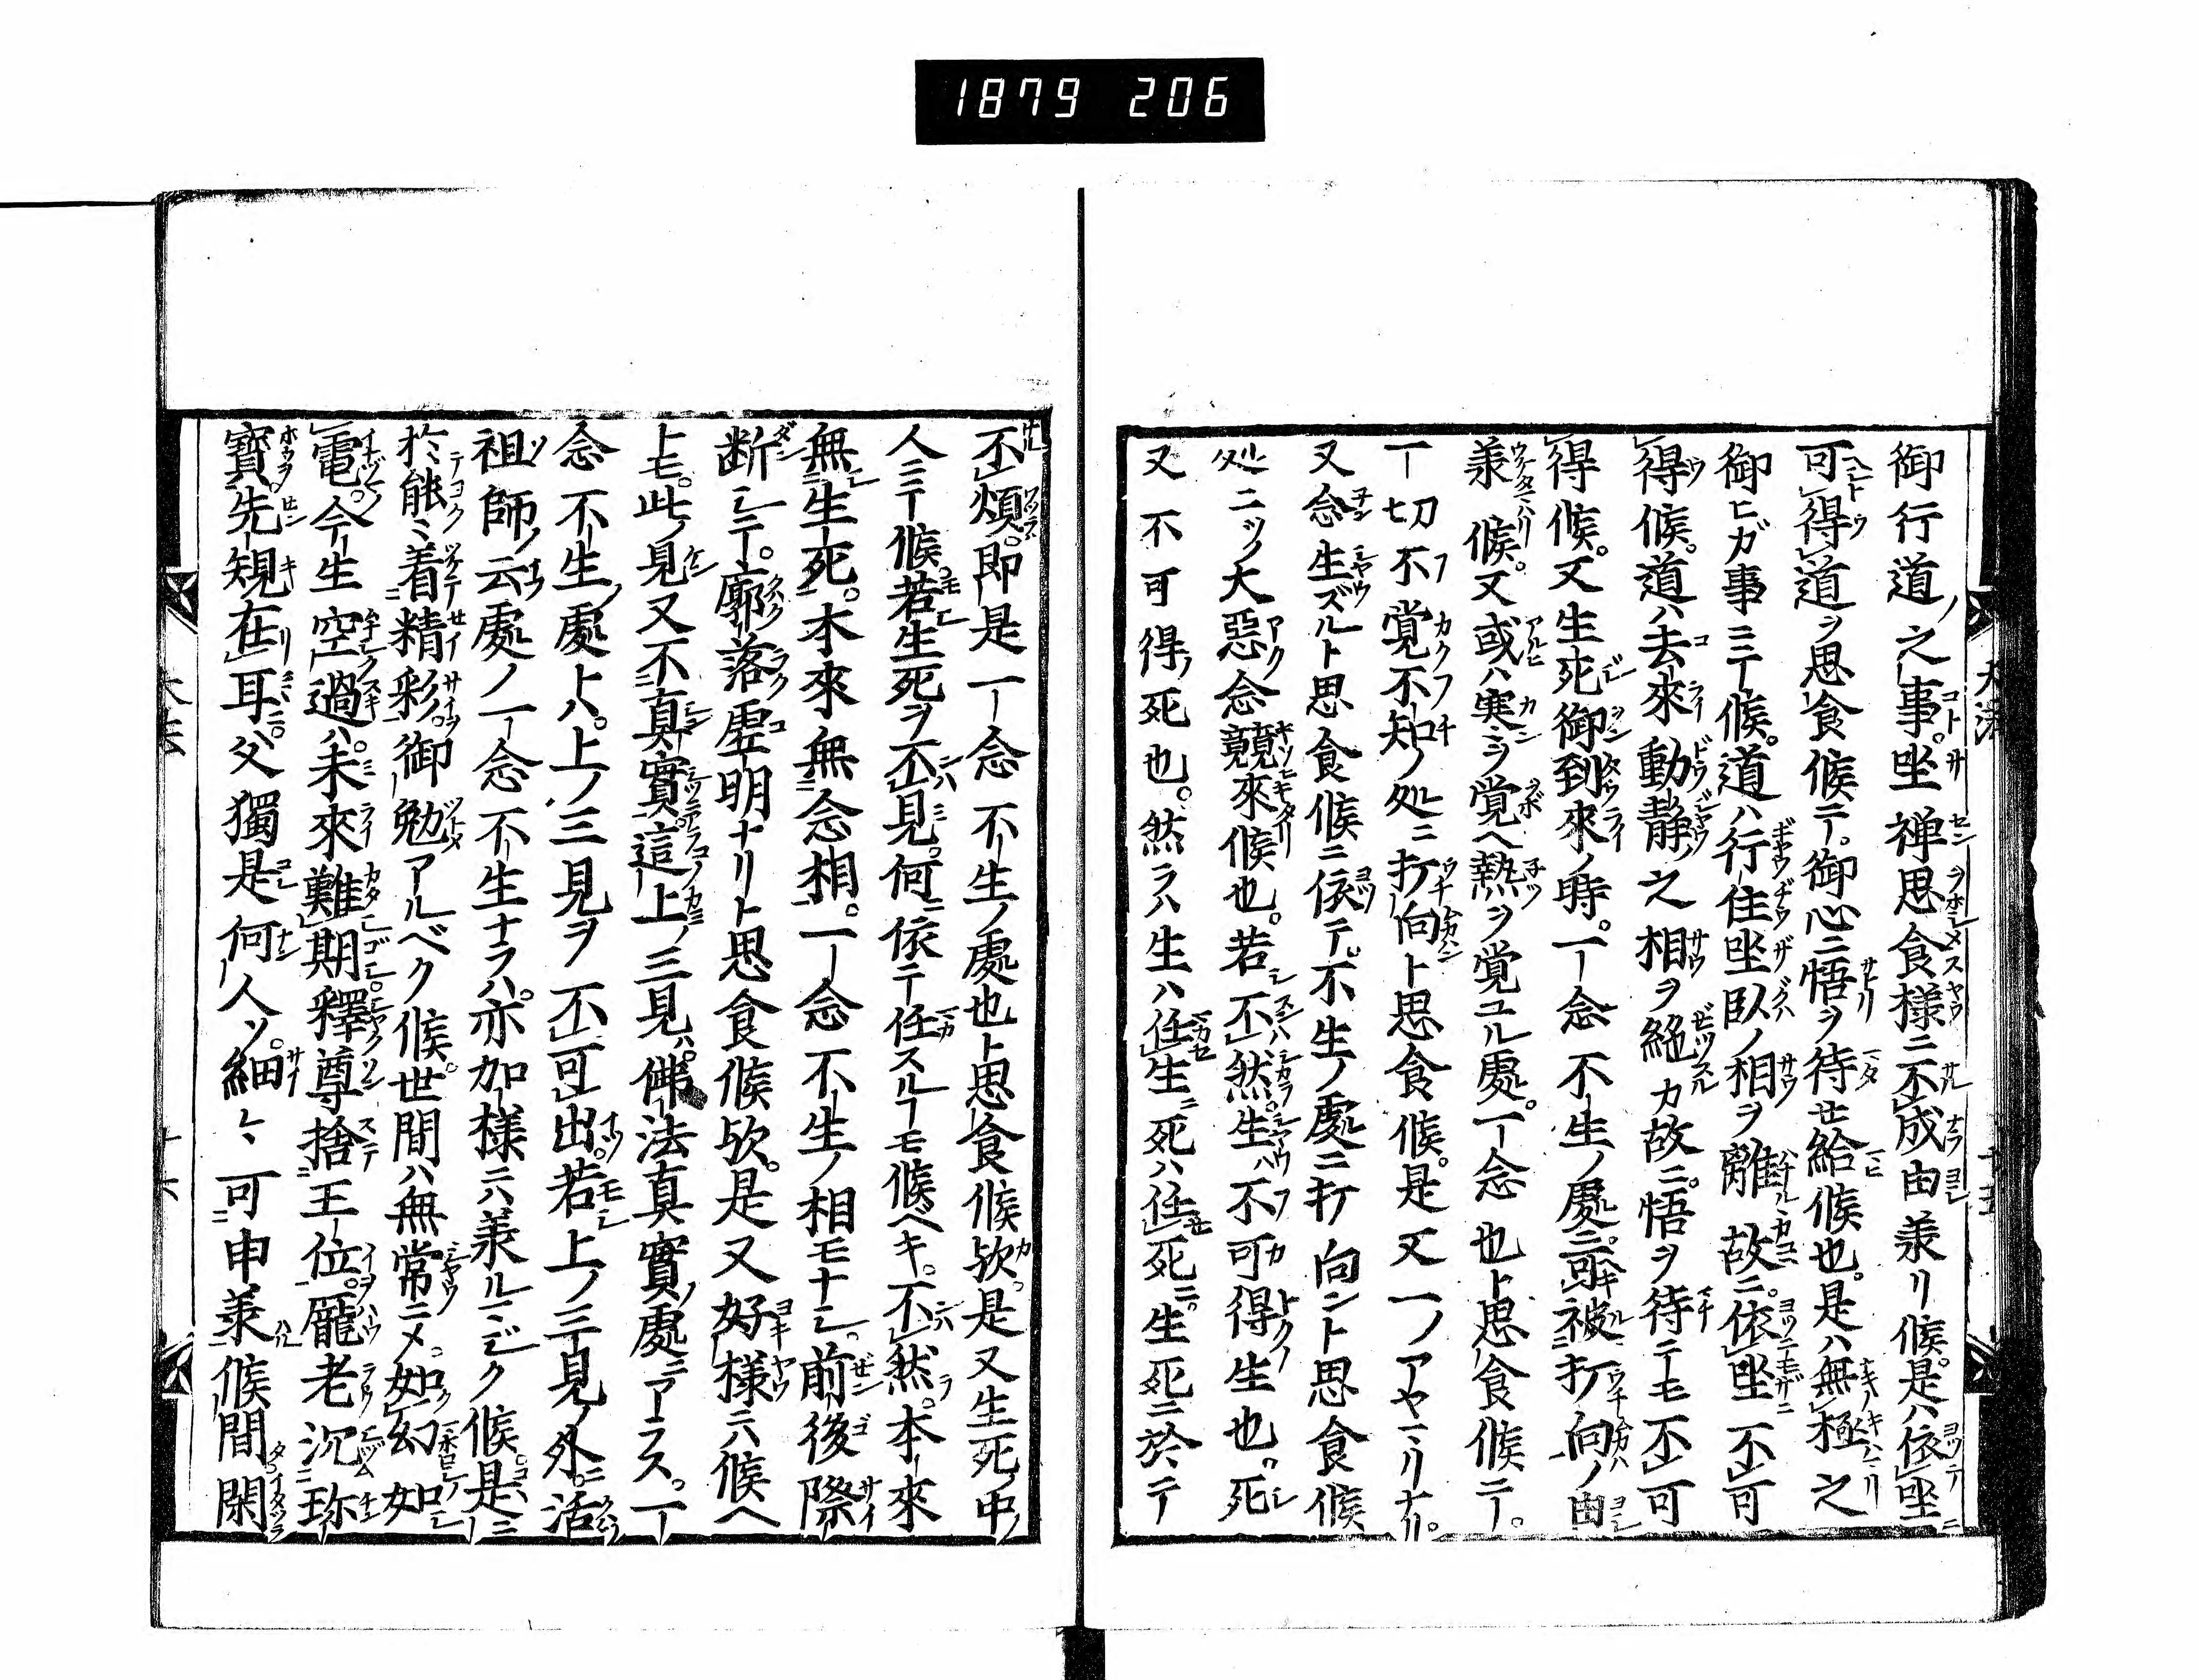 1879 206
御行道ノ之事。坐禅思食様ニ不成由羕リ候。是ハ依坐ニ
可得道ヲ思食候ニテ。御心ニ悟ヲ待セ給候也。是ハ無極之
御ヒガ事ニテ候。道ハ行住坐臥ノ相ヲ離故ニ。依坐不可
得候。道ハ去來動静之相ヲ絶カ故ニ。悟ヲ待テモ不可
得候。又生死御到來ノ時。一念不生ノ處ニ可被打向ノ由
羕候。又或ハ寒ヲ覚ヘ熱ヲ覚ユル處。一念也ト思食候ニテ。
一切不覚不知ノ処ニ打向ト思食候。是又一ノアヤマリナリ。
又念生ズルト思食候ニ依テ。不生ノ處ニ打向ント思食候
処ニ二ツノ大惡念競來候也。若不然。生ハ不可得ノ生也。死
又不可得ノ死也。然ラハ生ハ任生ニ死ハ任死ニ。生死ニ於テ
不煩。即是一念不生ノ處也ト思食候欤。是又生死ノ中ノ
人ニテ候。若生死ヲ不見。何ニ依テ任スルコモ候ベキ。不然。本來
無生死。本來無念相。一念不生ノ相モナシ。前後際
断シテ。廓落虚明ナリト思食候欤。是又好様ニハ候ヘ
トモ。此ノ見又不真實。這上ノ三見ハ。佛法真實ノ處ニアラス。一
念不生ノ處トハ。上ノ三見ヲ不可出。若上ノ三見ノ外ニ活
祖師ノ云處ノ一念不生ナラハ。亦加様ニハ羕ルマジク候。是ニ
於能ミ着精彩。御勉アルベク候。世間ハ無常ニメ。如幻如
電。今生空過ハ。未來難期。釋尊捨王位。龐老沉珎
寶。先規在耳。父獨是何人ソ。細ミ可申羕候間閑